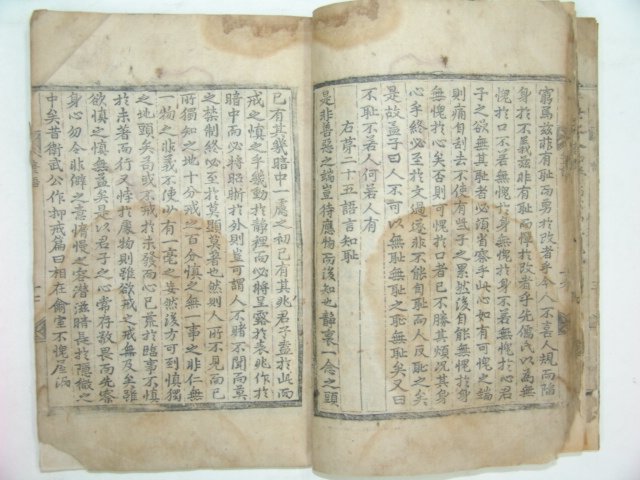 窮焉玆非有恥而勇於改者乎今人不喜人規而陷
身於不義玆非有恥而憚於改者乎先儒氏以為無
愧於口不若無愧於身無愧於身不若無愧於心君
子之欲無其恥者必須省察乎此心如有可愧之端
則痛自刮去不使有些子之累然後自能無愧於身
無愧於心矣否則可愧於口已不勝其煩况其身
心乎終必至於文過遂非不能自恥而人反恥之矣
是故孟子曰人不可以無恥無恥之恥無恥矣又曰
不恥不若人何若人有
右第二十五語言知恥
是非善惡之端豈待應物而後知也靜裏一念之頭
已有其幾暗中一處之初已有其兆君子盍於此而
戒之慎之乎幾動於靜裡而必將呈露於表兆作於
暗中而必將昭晰於外則豈可謂人不睹不聞而莫
之禁制終必至於莫顯莫著也然則人所不見而已
所獨知之地十分戒之百分慎之無一事之非仁無
一物之非義不使少有一毫之妄然後方可到慎獨
之地頭矣苟或不戒於未發而心已荒於臨事不慎
於未著而行又悖於處物則雖欲戒之戒無及矣雖
欲慎之慎無益矣是以君子之心常存敬畏而先察
身心勿令非僻之意惰慢之容潛滋暗長於隱微之
中矣昔衛武公作抑戒篇曰相在爾室不愧屋漏